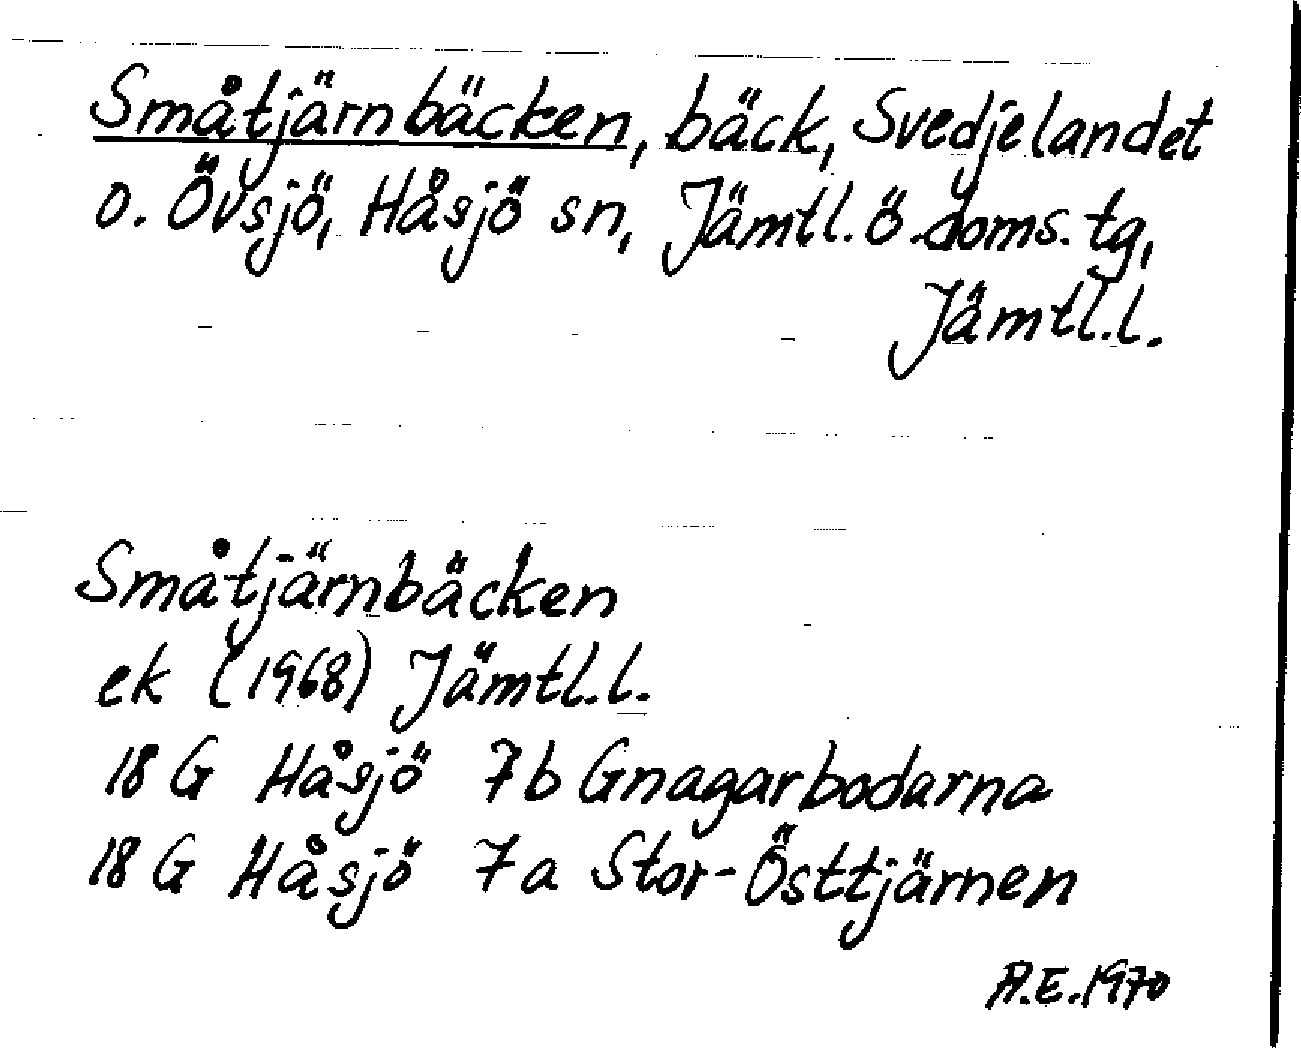 Småtjärnbäcken, bäck, Svedjelandet
o. Övsjö, Håsjö sn, Jämtl. ö. doms. tg,
Jämtl.l.
Småtjärnbäcken
ek (1968) Jämtl.l.
18 G Håsjö 7b Gnagarbodarna
18 G Håsjö 7a Stor-Östtjärnen
A.E. 1970